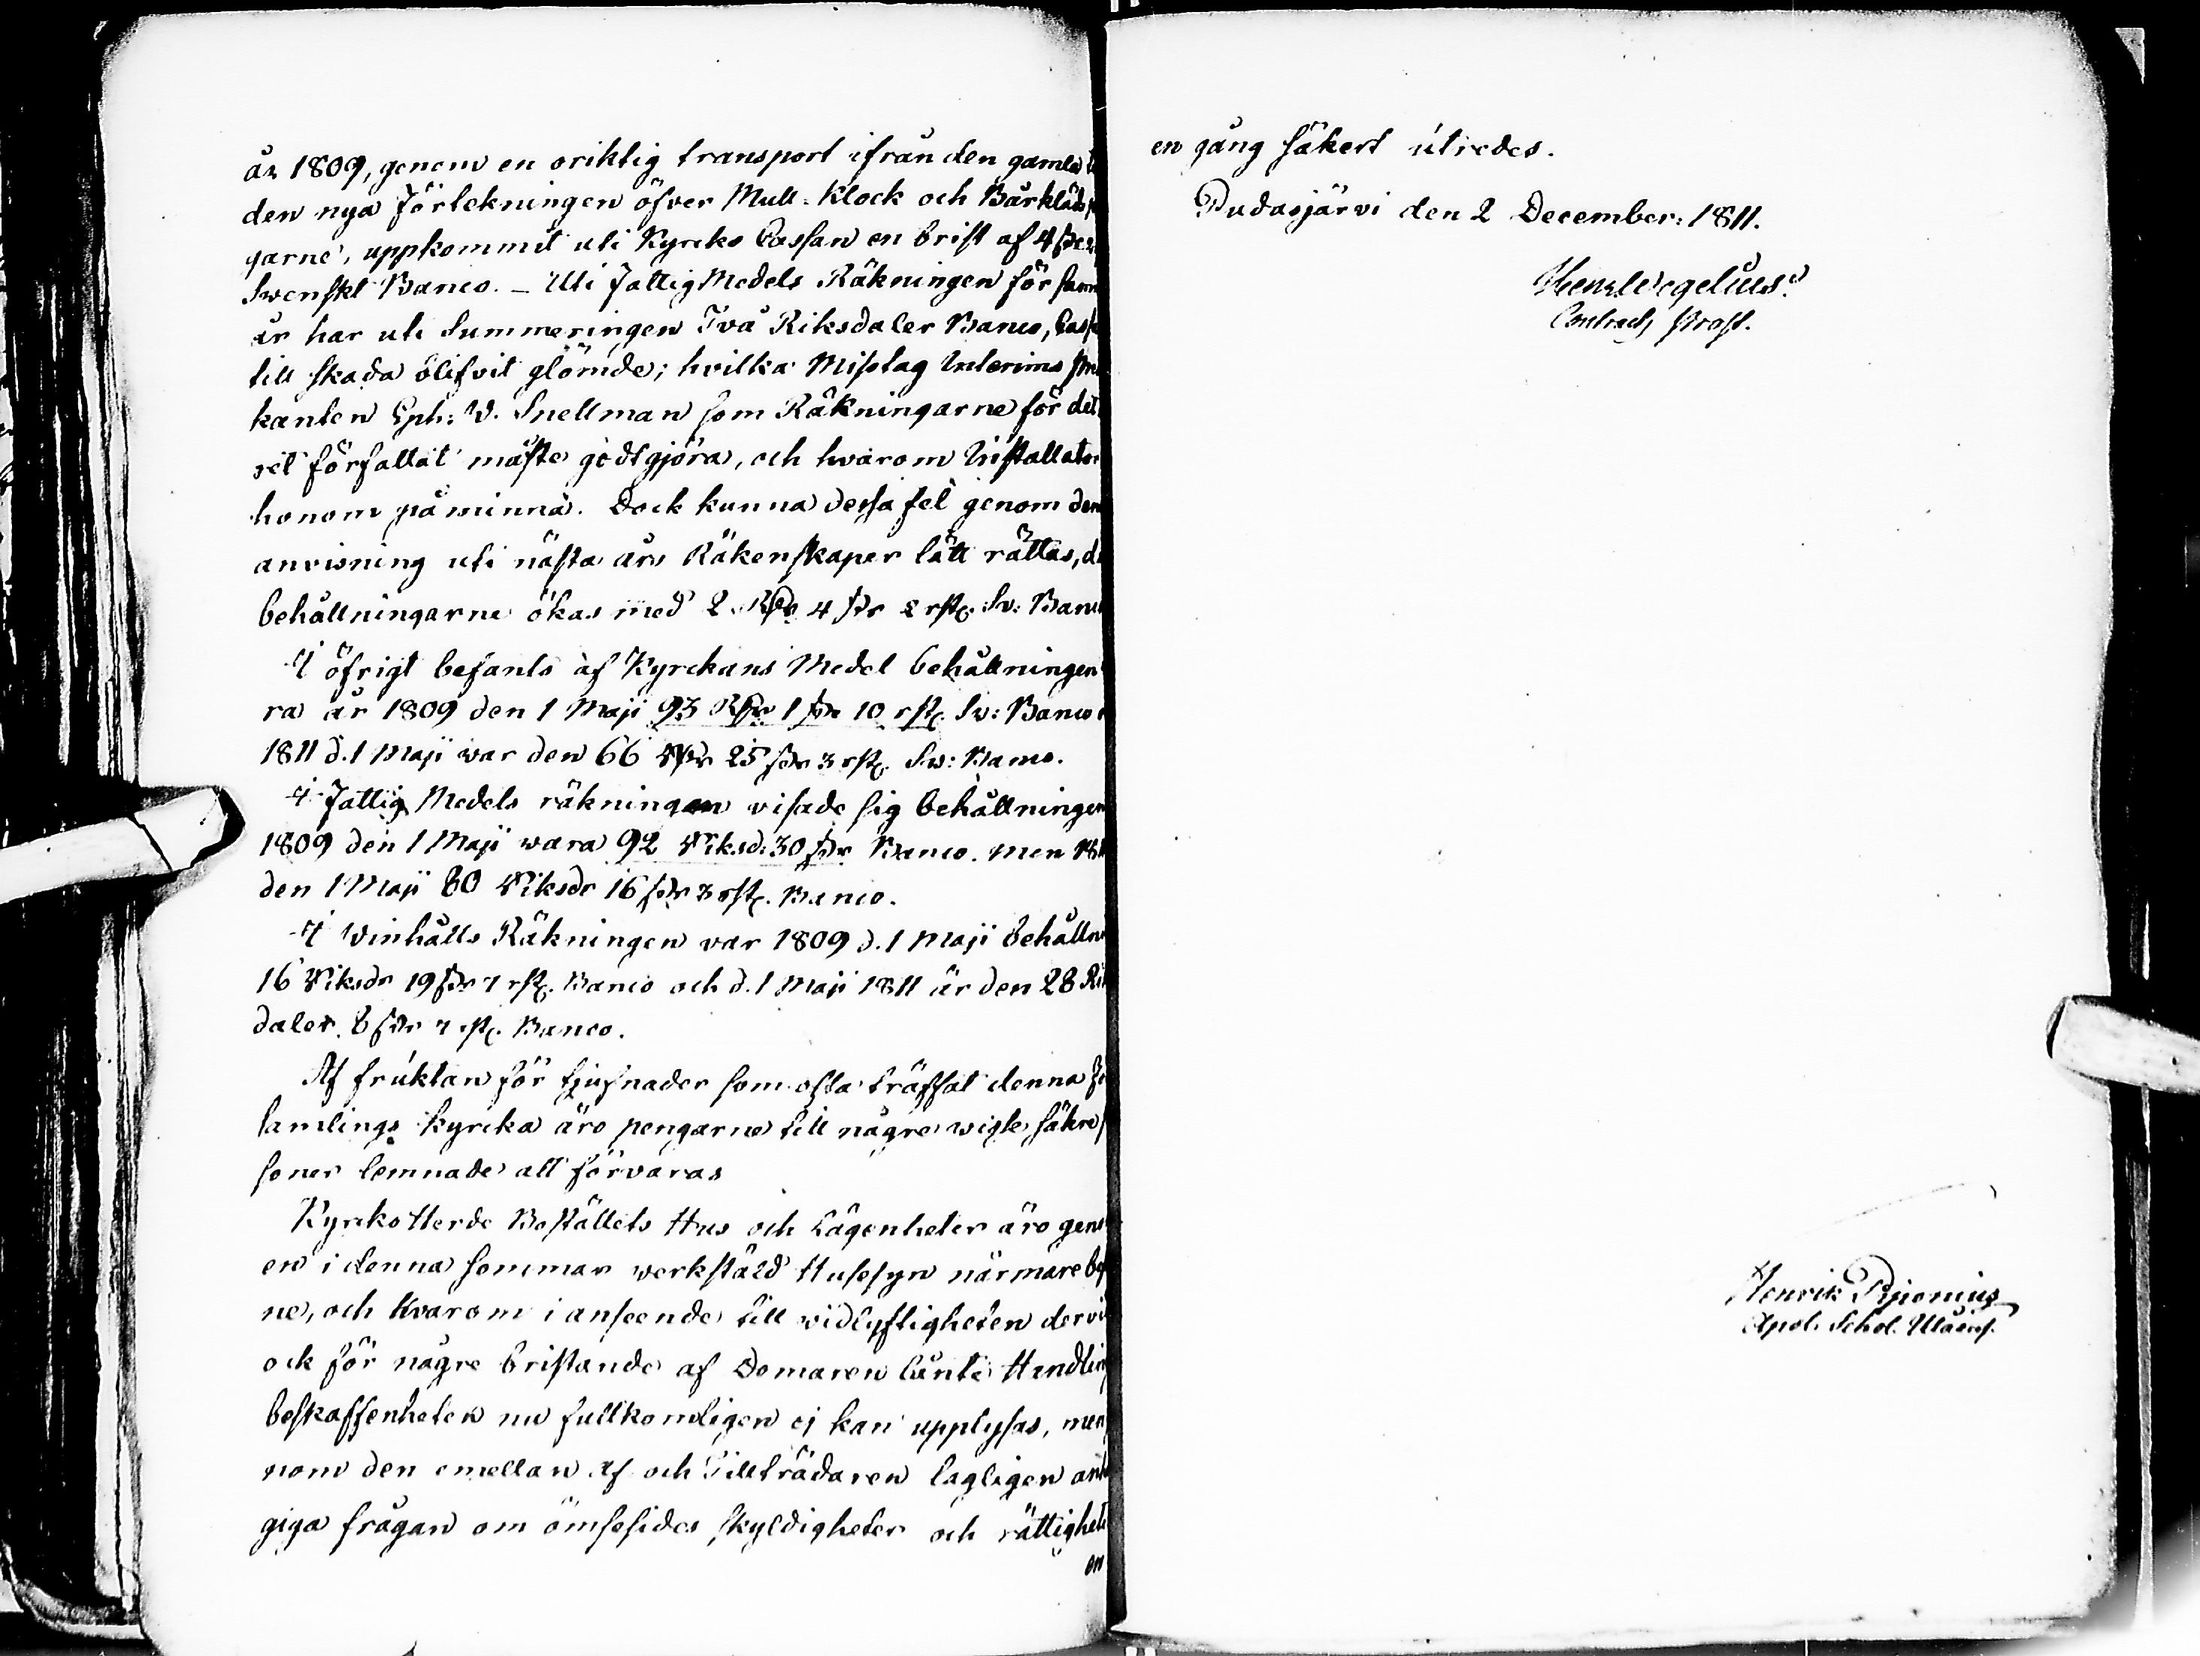 år 1809, genom en oriktig transport ifrån den gamla
den nya Förtekningen öfver Mull- Klock och Bårkläds
garne, uppkommit uti Kyrcko Cassan en brist af 4
Swenskt Banco. – Uti Fattig Medels Räkningen för sam
år har uti Summeringen Två Riksdaler Banco, Cass
till skada blifvit glömde; hvilka Misstag Interims
kanten Eph: W. Snellman som Räkningarne för det
ret författat måste godtgjöra, och hvarom Installator
honom påminna. Dock kunna dessa fel genom den
anvisning uti nästa års Räkenskaper lätt rättas, d
behållningarne ökas med 2 Rdr 4 sdr 2 rst. Sv: Banco
I öfrigt befants af Kyrckans Medel behållningen
ra år 1809 den 1 Maji 93 Rdr 1 sdr 10 rst. Sv: Banco
1811 d. 1 Maji war den 66 Rdr 25 sdr 3 rst. Sw: Banco.
I Fattig Medels räkningen visade sig behållningen
1809 den 1 Maji wara 92 Riksd: 30 sdr Banco. men 1811
den 1 Maji 80 Riksdr 16 sdr 3 rst. Banco.
I Winhålls Räkningen var 1809 d. 1 Maji behålln
16 Riksdr 19 sdr 7 rst. Banco och d. 1 Maji 1811 är den 28 Rik
daler 8 sdr 7 rst. Banco.
Af fruktan för tjufnader som ofta träffat denna Fö
samlings kyrcka äro pengarne till någre wisse säkre
soner lemnade att förvaras
Kyrcko Herde Boställets Hus och Lägenheter äro geno
en i denna sommar werkstäld Husesyn närmare bes
ne, och hvarom i anseende till widlyftigheten dervi
ock för någre bristande af Domaren lånte Handling
beskaffenheten nu fullkomligen ej kan upplysas, men
nom den emellan Af och Tillträdaren lagligen anh
giga frågan om ömsesides skyldigheter och rättighet
en
en gång säkert utredes.
Pudasjärvi den 2 December: 1811.
Contracts Prost.
Henrik Piponius
Apol. Schol. Uloëns.